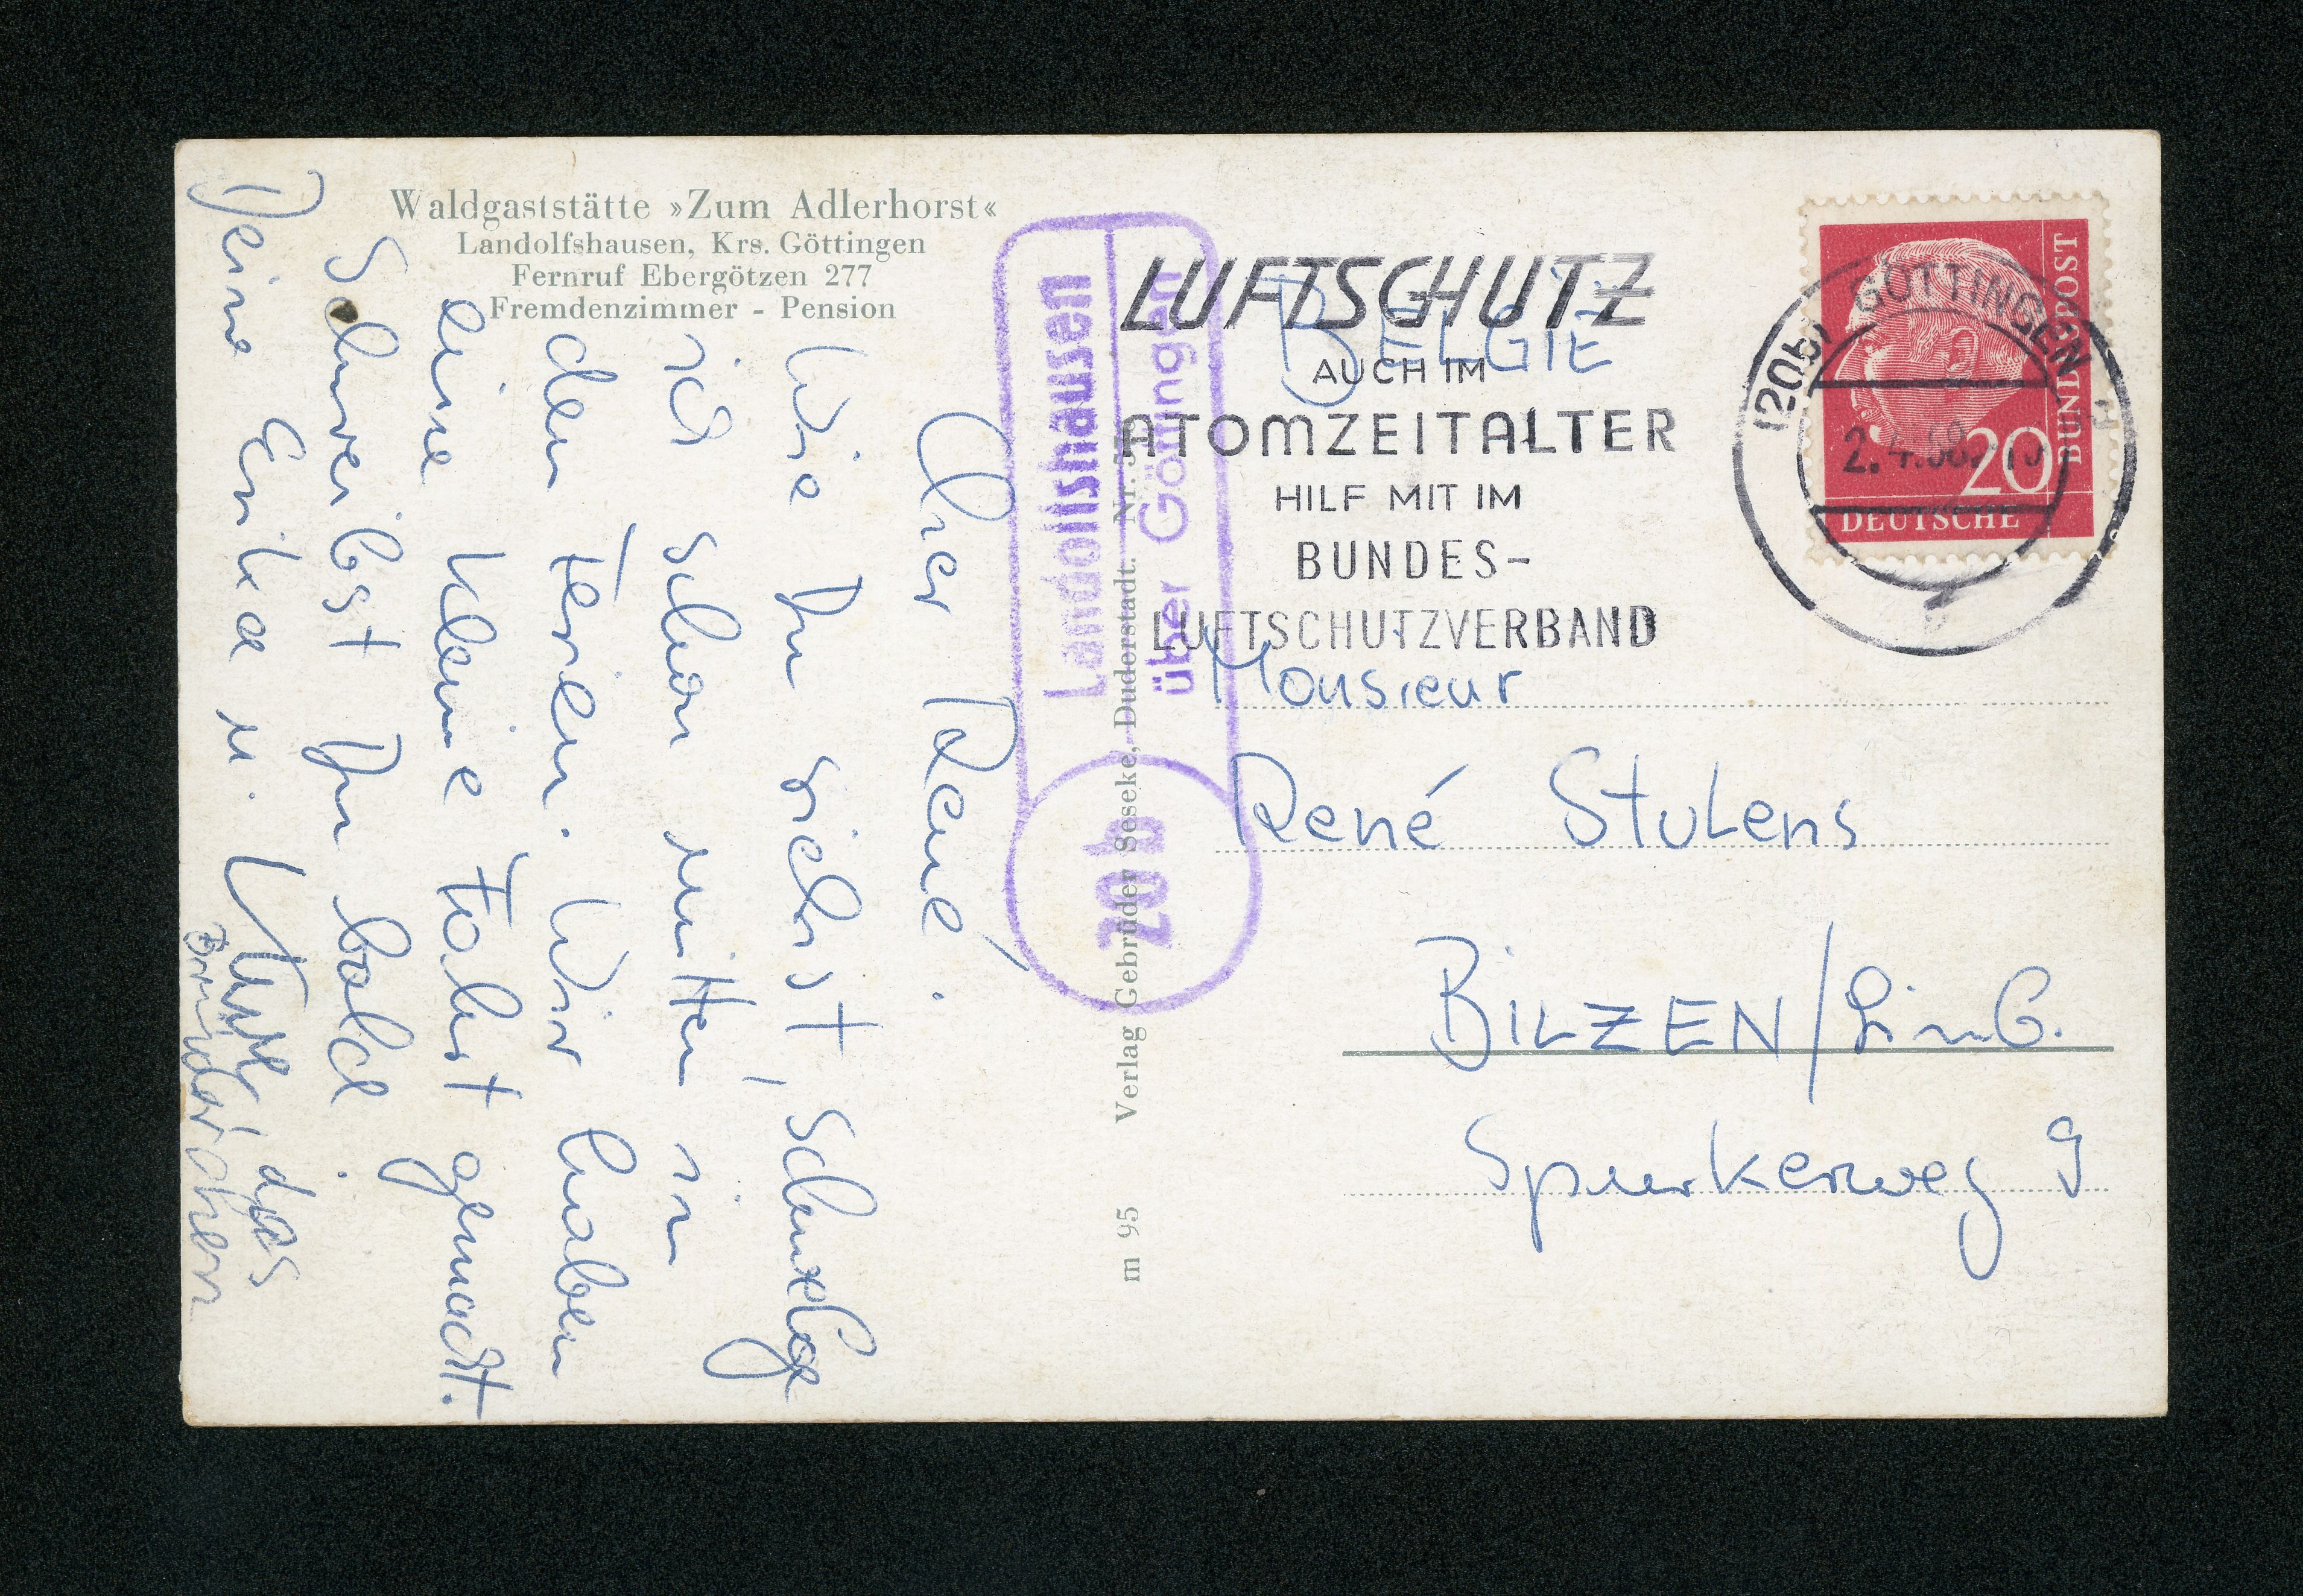 Waldgaststätte »Zum Adlerhorst«
Landolfshausen, Krs. Göttingen
Fernruf Ebergötzen 277
Fremdenzimmer - Pension
Cher René,
Wie Du siehst, schwelge
ich schon mitten in
den Ferien. Wir haben
eine kleine Fahrt gemacht.
Schreibst Du bald.
Deine Erika u.
das
Brüderchen
Landolfshausen
über Göttingen
20b
m 95 Verlag Gebrüder Seseke, Duderstadt. Nr.
LUFTSCHUTZ
AUCH IM
ATOMZEITALTER
HILF MIT IM
BUNDES-
LUFTSCHUTZVERBAND
(20b) GÖTTINGEN
2.4.58
DEUTSCHE
BUNDESPOST
20
BELGIE
Monsieur
René Stulens
BILZEN/Limb.
Spurkerweg 9